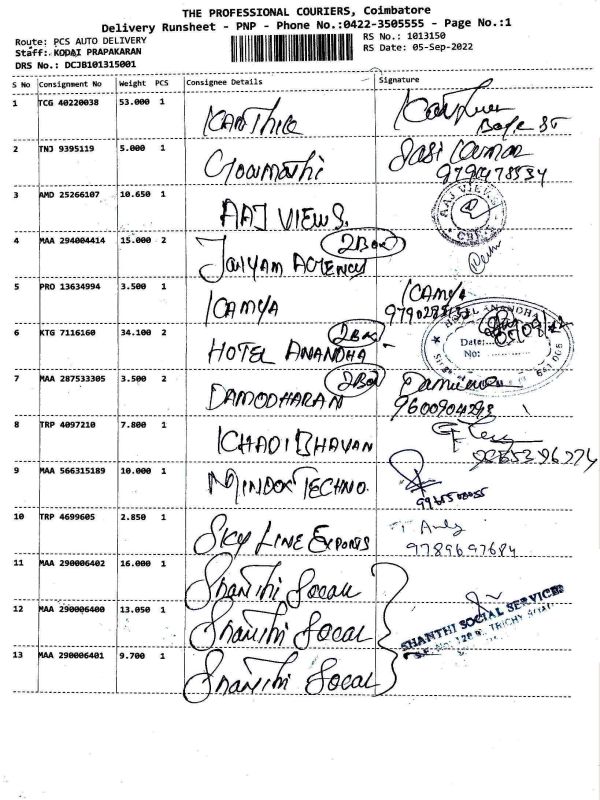 THE PROFESSIONAL COURIERS, Coimbatore
Delivery Runsheet - PNP - Phone No.:0422-3505555 - Page No.:1
Route: PCS AUTO DELIVERY
Staff: KODAI PRAPAKARAN
DRS No.: DCJB101315001
RS No.: 1013150
RS Date: 05-Sep-2022
S No Consignment No Weight PCS Consignee Details Signature
1 TCG 40220038 53.000 1 KARTHIK
2 TNJ 9395119 5.000 1 Gowmathi Sasi Kumar
3 AMD 25266107 10.650 1 AAJ VIEWS. AAJ VIEWS
4 MAA 294004414 15.000 2 JAIYAM AGENCY 2Box
5 PRO 13634994 3.500 1 KAMYA KAMYA
6 KTG 7116160 34.100 2 HOTEL ANANDHA 2Box HOTEL ANANDHA
Date:
No:
641 008
7 MAA 287533305 3.500 2 DAMODHARAN 2Box
9600904298
8 TRP 4097210 7.800 1 KHADI BHAVAN
9 MAA 566315189 10.000 1 MINDOX TECHNO.
10 TRP 4699605 2.850 1 SKY LINE EXPORTS
9789697684
11 MAA 290006402 16.000 1 SHANTHI SOCAL
12 MAA 290006400 13.050 1 SHANTHI SOCAL
SHANTHI SOCIAL SERVICES
TRICHY ROAD
13 MAA 290006401 9.700 1 SHANTHI SOCAL